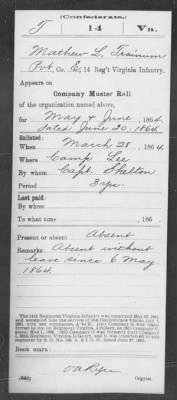 (Confederate.)
T 14 Va.
Mathew L. Trainum
Pvt, Co. E, 14 Reg't Virginia Infantry.
Appears on
Company Muster Roll
of the organization named above,
for May & June, 1864.
dated June 30, 1864
Enlisted:
When March 28, 1864
Where Camp Lee
By whom Capt. Shelton
Period 3 yrs.
Last paid:
By whom
To what time , 186 .
Present or absent Absent
Remarks: Absent without
leave since 6 May
1864.
Book mark:
Copyist.